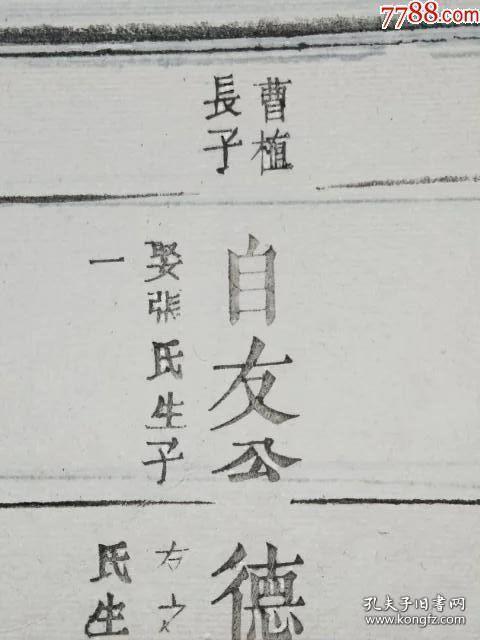 7788.com
曹植
長子
自友公
娶張氏生子
一
德
右之
氏生
孔夫子旧书网
www.kongfz.com